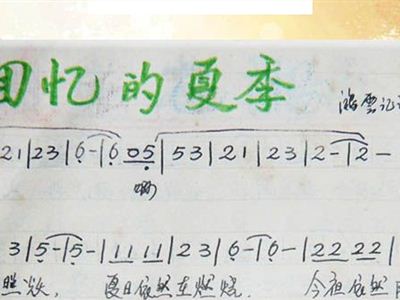 回忆的夏季
21|23|6-|6 05|53|21|23|2-|2-
啊
3|5-|5-|11 11|23|6-|6-|22 22|2
夏日依然在燃烧. 今夜依然